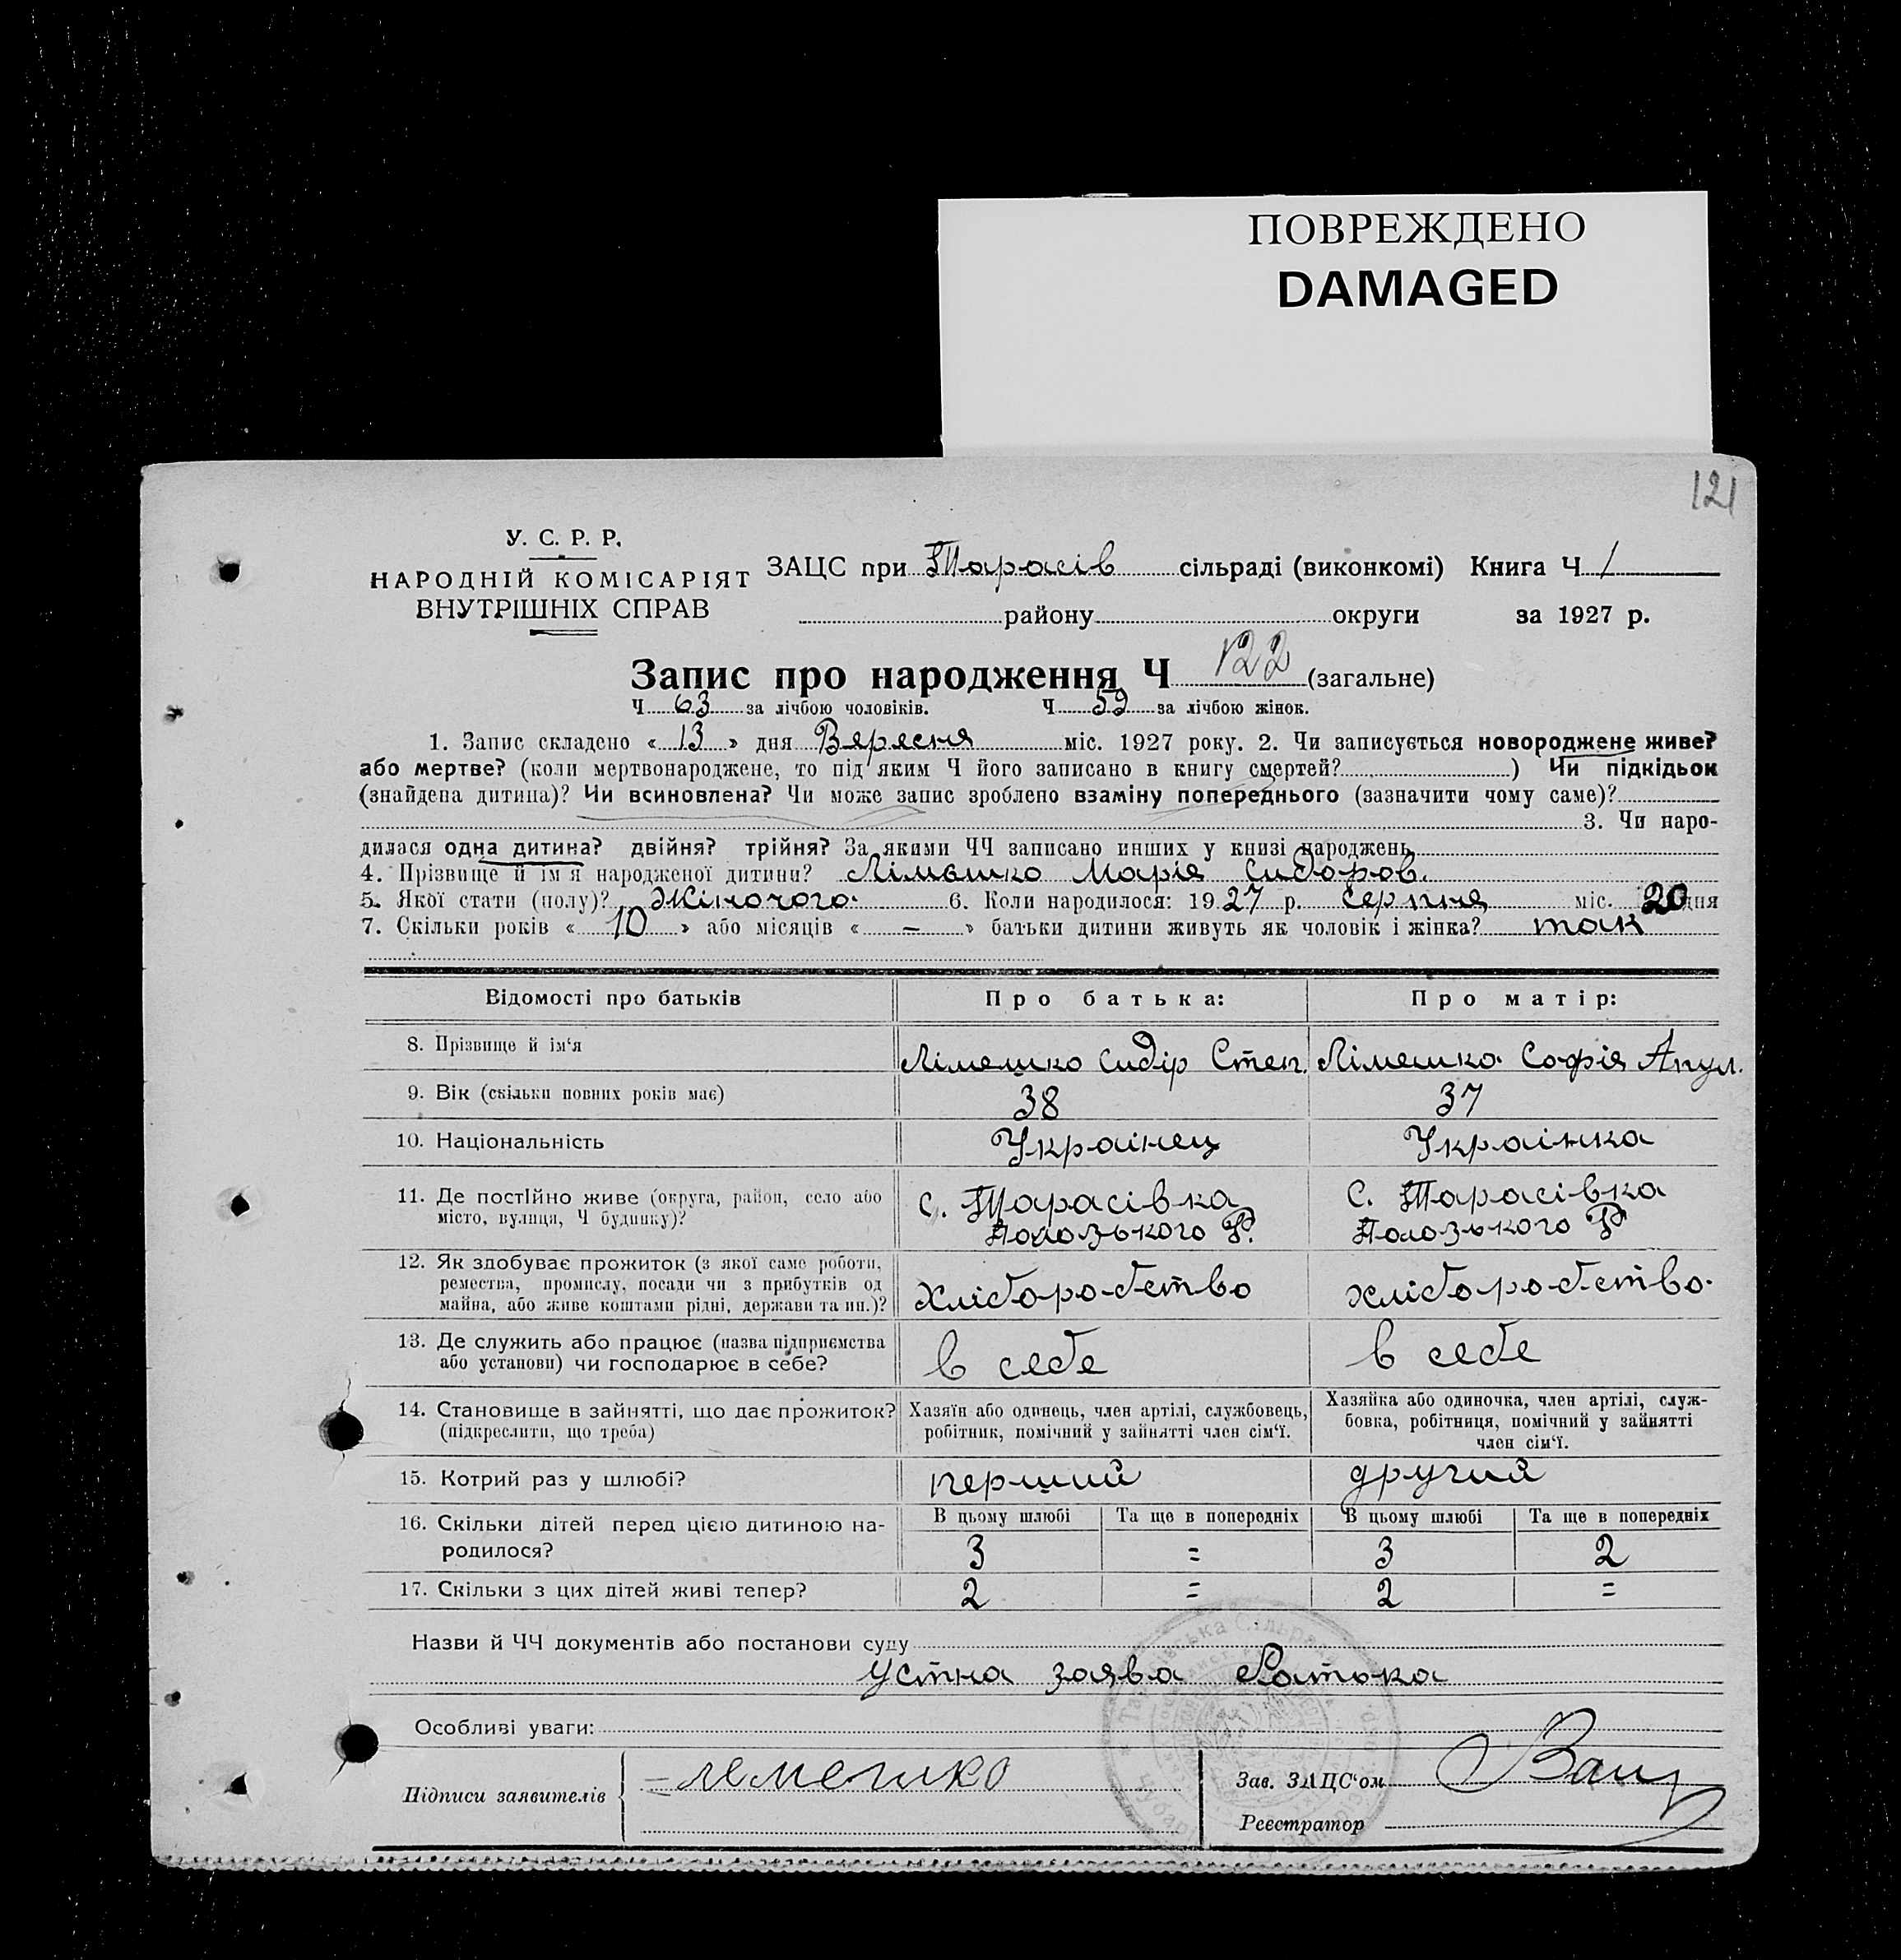 ПОВРЕЖДЕНО
DAMAGED
121
У. С. Р. Р.
НАРОДНІЙ КОМІСАРІЯТ
ВНУТРІШНІХ СПРАВ
ЗАЦС при Тарасів сільраді (виконкомі) Книга Ч 1
району округи за 1927 р.
Запис про народження Ч 122 (загальне)
Ч 63 за лічбою чоловіків. Ч 59 за лічбою жінок.
1. Запис складено « 13 » дня Вересня міс. 1927 року. 2. Чи записується новороджене живе?
або мертве? (коли мертвонароджене, то під яким Ч його записано в книгу смертей? ) Чи підкідьок
(знайдена дитина)? Чи всиновлена? Чи може запис зроблено взаміну попереднього (зазначити чому саме)?
3. Чи наро-
дилася одна дитина? двійня? трійня? За якими ЧЧ записано инших у книзі народжень
4. Прізвище й ім'я народженої дитини? Лімешко Марія Сидоров.
5. Якої стати (полу)? Жіночого. 6. Коли народилося: 1927 р. Серпня міс. 20 дня
7. Скільки років « 10 » або місяців « – » батьки дитини живуть як чоловік і жінка? так
Відомості про батьків Про батька: Про матір:
8. Прізвище й ім'я Лімешко Сидір Степ. Лімешко Софія
9. Вік (скільки повних років має) 38 37
10. Національність Українец Українка
11. Де постійно живе (округа, район, село або
місто, вулиця, Ч будинку)?
с. Тарасівка с. Тарасівка
Полозького Р. Полозького Р
12. Як здобуває прожиток (з якої саме роботи,
ремества, промислу, посади чи з прибутків од
майна, або живе коштами рідні, держави та ин.)?
хліборобство хліборобство.
13. Де служить або працює (назва підприємства
або установи) чи господарює в себе?
в себе в себе
14. Становище в зайнятті, що дає прожиток?
(підкреслити, що треба)
Хазяїн або одинець, член артілі, службовець,
робітник, помічний у зайнятті член сім'ї.
Хазяйка або одиночка, член артілі, служ-
бовка, робітниця, помічний у зайнятті
член сім'ї.
15. Котрий раз у шлюбі? перший другий
16. Скільки дітей перед цією дитиною на-
родилося?
В цьому шлюбі Та ще в попередніх В цьому шлюбі Та ще в попередніх
3 = 3 2
17. Скільки з цих дітей живі тепер? 2 = 2 =
Назви й ЧЧ документів або постанови суду
Устна заява батька
Особливі уваги:
Підписи заявителів Лемешко
Зав. ЗАЦС'ом
Реєстратор